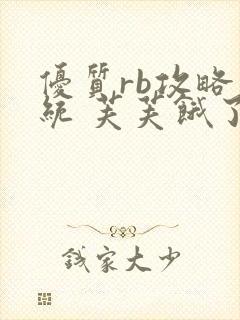 優質rb攻略
統 芙芙餓了
錢家大少